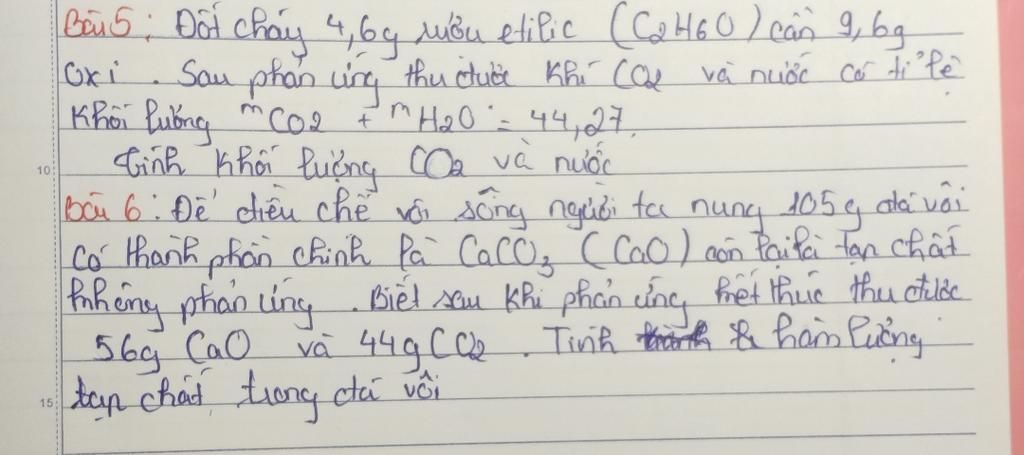 Bài 5: Đốt cháy 4,6g rượu etilic (C2H6O) cần 9,6g
oxi. Sau phản ứng thu được khí CO2 và nước có tỉ lệ
khối lượng mCO2 + mH2O = 44,27.
tính khối lượng CO2 và nước
Bài 6: Để điều chế vôi sống người ta nung 105g đá vôi
có thành phần chính là CaCO3 (CaO) còn lại là tạp chất
không phản ứng. Biết sau khi phản ứng kết thúc thu được
56g CaO và 44g CO2. Tính hàm lượng
tạp chất trong đá vôi
10
15